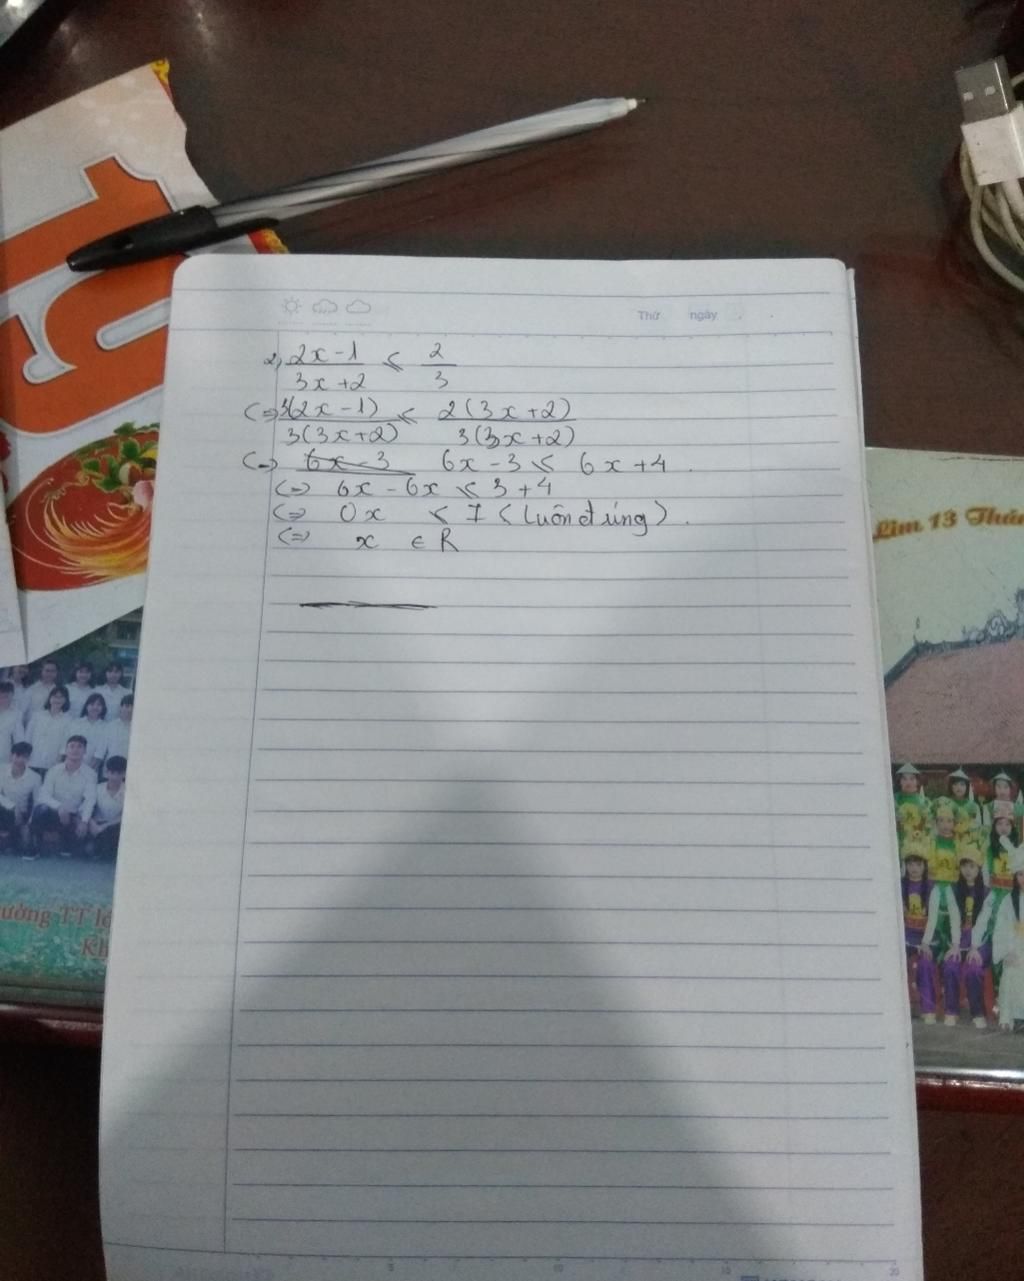 Thứ ngày
2, (2x-1)/(3x+2) ≤ 2/3
(=) 3(2x-1)/3(3x+2) ≤ 2(3x+2)/3(3x+2)
(=) 6x-3 6x-3 ≤ 6x+4.
(=) 6x-6x ≤ 3+4
(=) 0x ≤ 7 (luôn đúng).
(=) x ∈ R
Lim 13 Thán
ường TT lớ
Kh